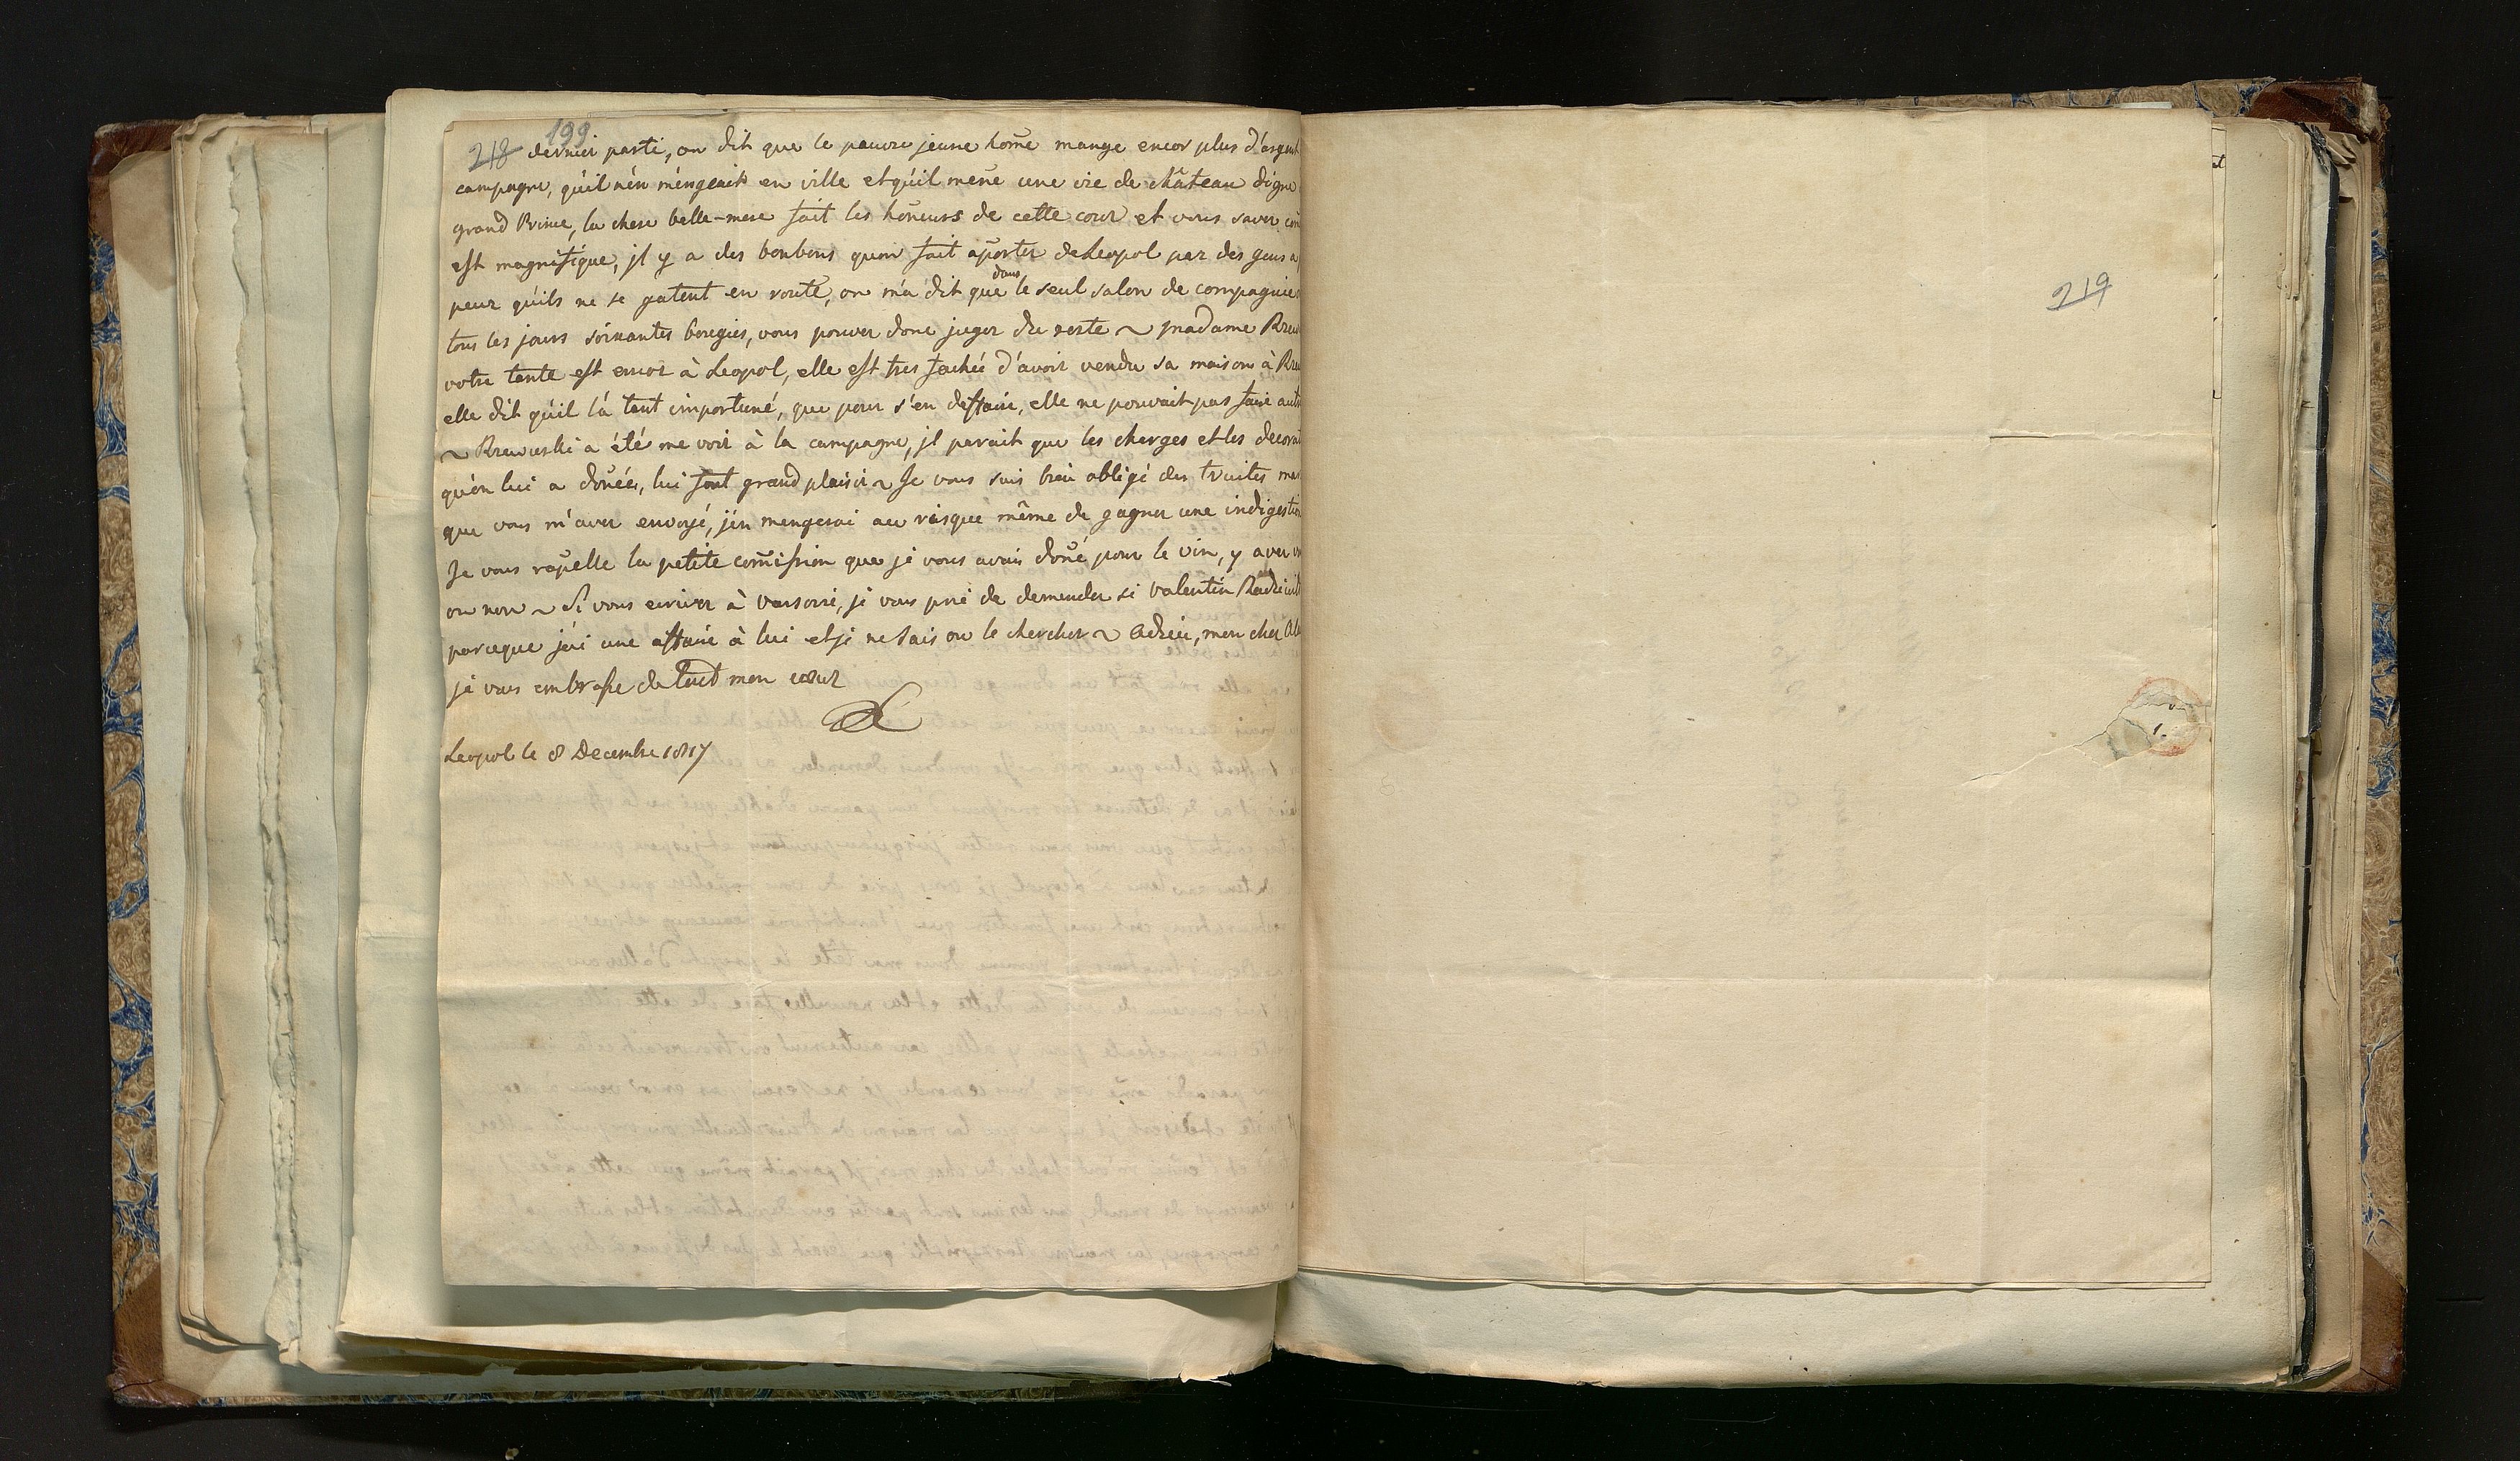 199
218 dernier parti, on dit que le pauvre jeune hom̃e mange encor plus d'argent
campagne, qu'il n'en mengeait en ville et qu'il mene une vie de château digne
grand Prince, la chere belle-mere fait les hon̄eurs de cette cour et vous saver
est magnifique, jl y a des bonbons quon fait ap̄orter de Leopol par des gens a
peur qu'ils ne se gatent en route, on m'a dit que dans le seul salon de compagnie
tous les jours soixantes bougies, vous pouver donc juger du reste ~ madame Rzew
votre tante est encor à Leopol, elle est tres fachée d'avoir vendu sa maison à Rzew
elle dit qu'il l'a tant importuné, que pour s'en deffaire, elle ne pouvait pas faire autr
~ Rzewuski a été me voir à la campagne, jl parait que les charges et les decorat
qu'on lui a don̄ées, lui font grand plaisir ~ Je vous suis bien obligé des truites mar
que vous m'aver envoyé, j'en mengerai au risque même de gagner une indigestion
Je vous rap̄elle la petite com̄ission que je vous avais don̄é pour le vin, y aver vo
ou non ~ Si vous ecriver à varsovie, je vous prie de demender si valentin Radziwil
parceque j'ai une affaire à lui et je ne sais ou le chercher ~ Adieu, mon cher Al
je vous embrasse de tout mon cœur
Leopol le 8 Decembre 1817
219